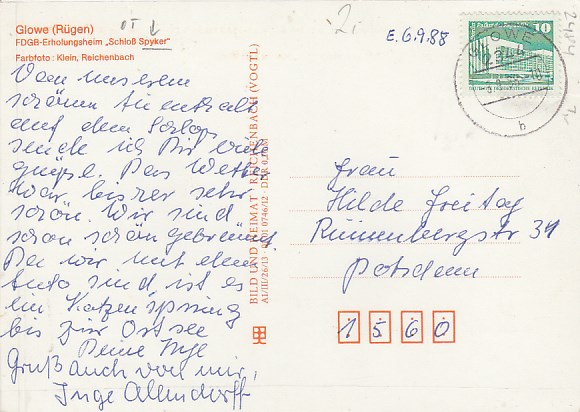 Glowe (Rügen)
FDGB-Erholungsheim „Schloß Spyker"
Farbfoto: Klein, Reichenbach
-2.-
E. 6.9.88
GLOWE
2344
b
10
DEUTSCHE DEMOKRATISCHE REPUBLIK
Von unserem
schönen Aufenthalt
auf dem Schloß
sende ich Dir viele
Grüße. Das Wetter
war bisher sehr
schön. Wir sind
schon schön gebrannt
Da wir mit dem
Auto sind, ist es
ein Katzensprung
bis zur Ostsee
Deine Inge
Gruß auch von mir,
Inge Allendorff
BILD UND HEIMAT · REICHENBACH (VOGTL)
A1/III/26/13 0746/12 · DDR 0,
Frau
Hilde Freitag
str 34
Potsdam
1560